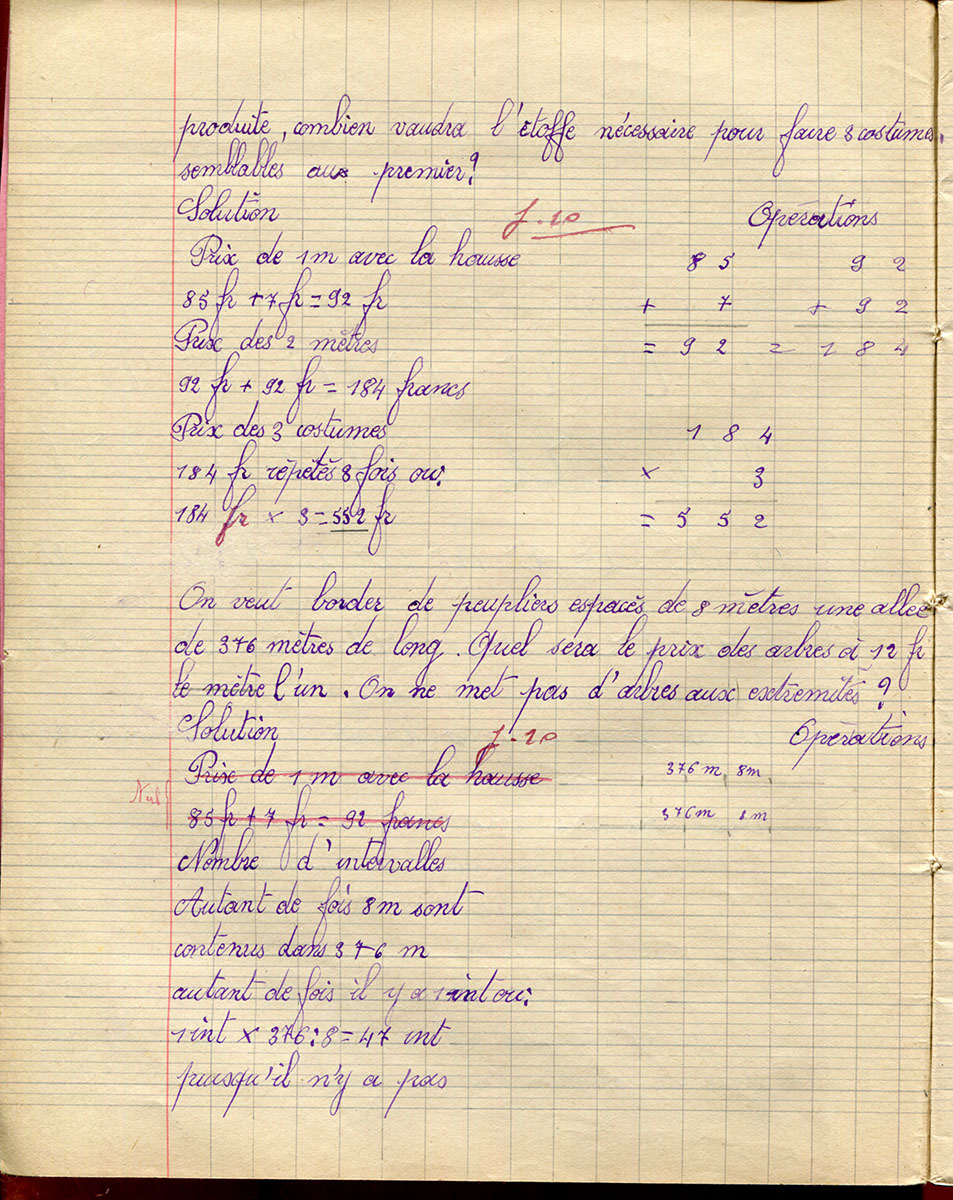 produite, combien vaudra l'étoffe nécessaire pour faire 3 costumes
semblables aux premier?
Solution
Opérations
Prix de 1m avec la hausse
85 fr + 7 fr = 92 fr
Prix des 2 mètres
92 fr + 92 fr = 184 francs
Prix des 3 costumes
184 fr répétés 3 fois ou:
184 fr × 3 = 552 fr
8 5
+ 7
= 9 2
9 2
+ 9 2
= 1 8 4
1 8 4
× 3
= 5 5 2
On veut border de peupliers espacés de 8 mètres une allée
de 376 mètres de long. Quel sera le prix des arbres à 12 fr
le mètre l'un. On ne met pas d'arbres aux extremités?
Solution
Opérations
Prix de 1 m avec la hausse
85 fr + 7 fr = 92 francs
376 m 8m
376m 8m
Nombre d'intervalles
Autant de fois 8m sont
contenus dans 376 m
autant de fois il y a 1 int ou:
1 int × 376:8 = 47 int
puisqu'il n'y a pas